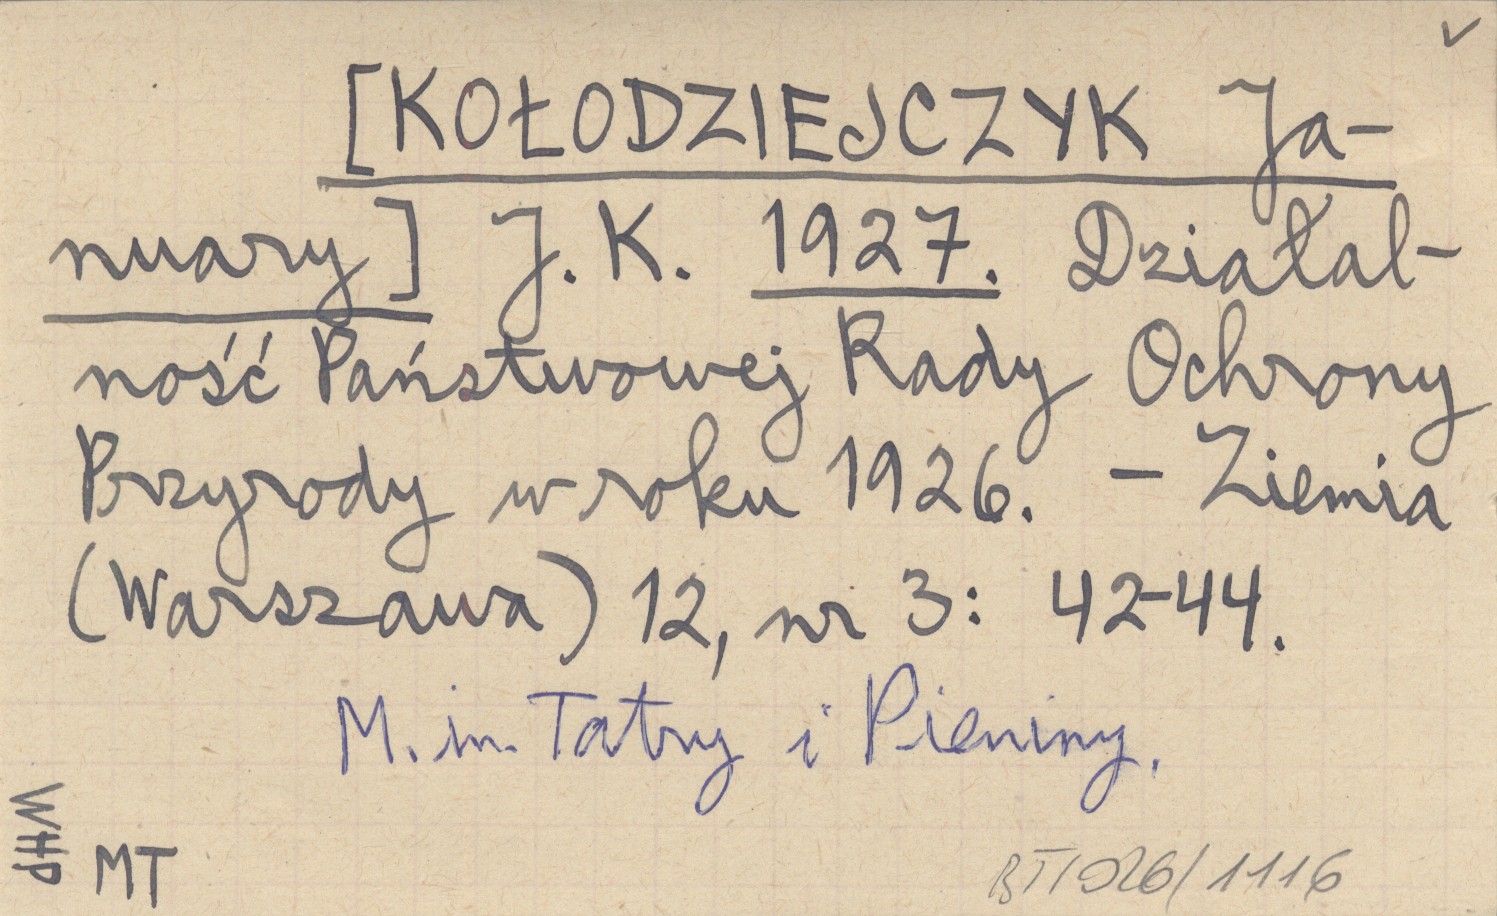 ✓
[KOŁODZIEJCZYK Ja-
nuary] J. K. 1927. Działal-
ność Państwowej Rady Ochrony
Przyrody w roku 1926. – Ziemia
(Warszawa) 12, nr 3: 42-44.
M. in. Tatry i Pieniny.
WHP
MT
/1116